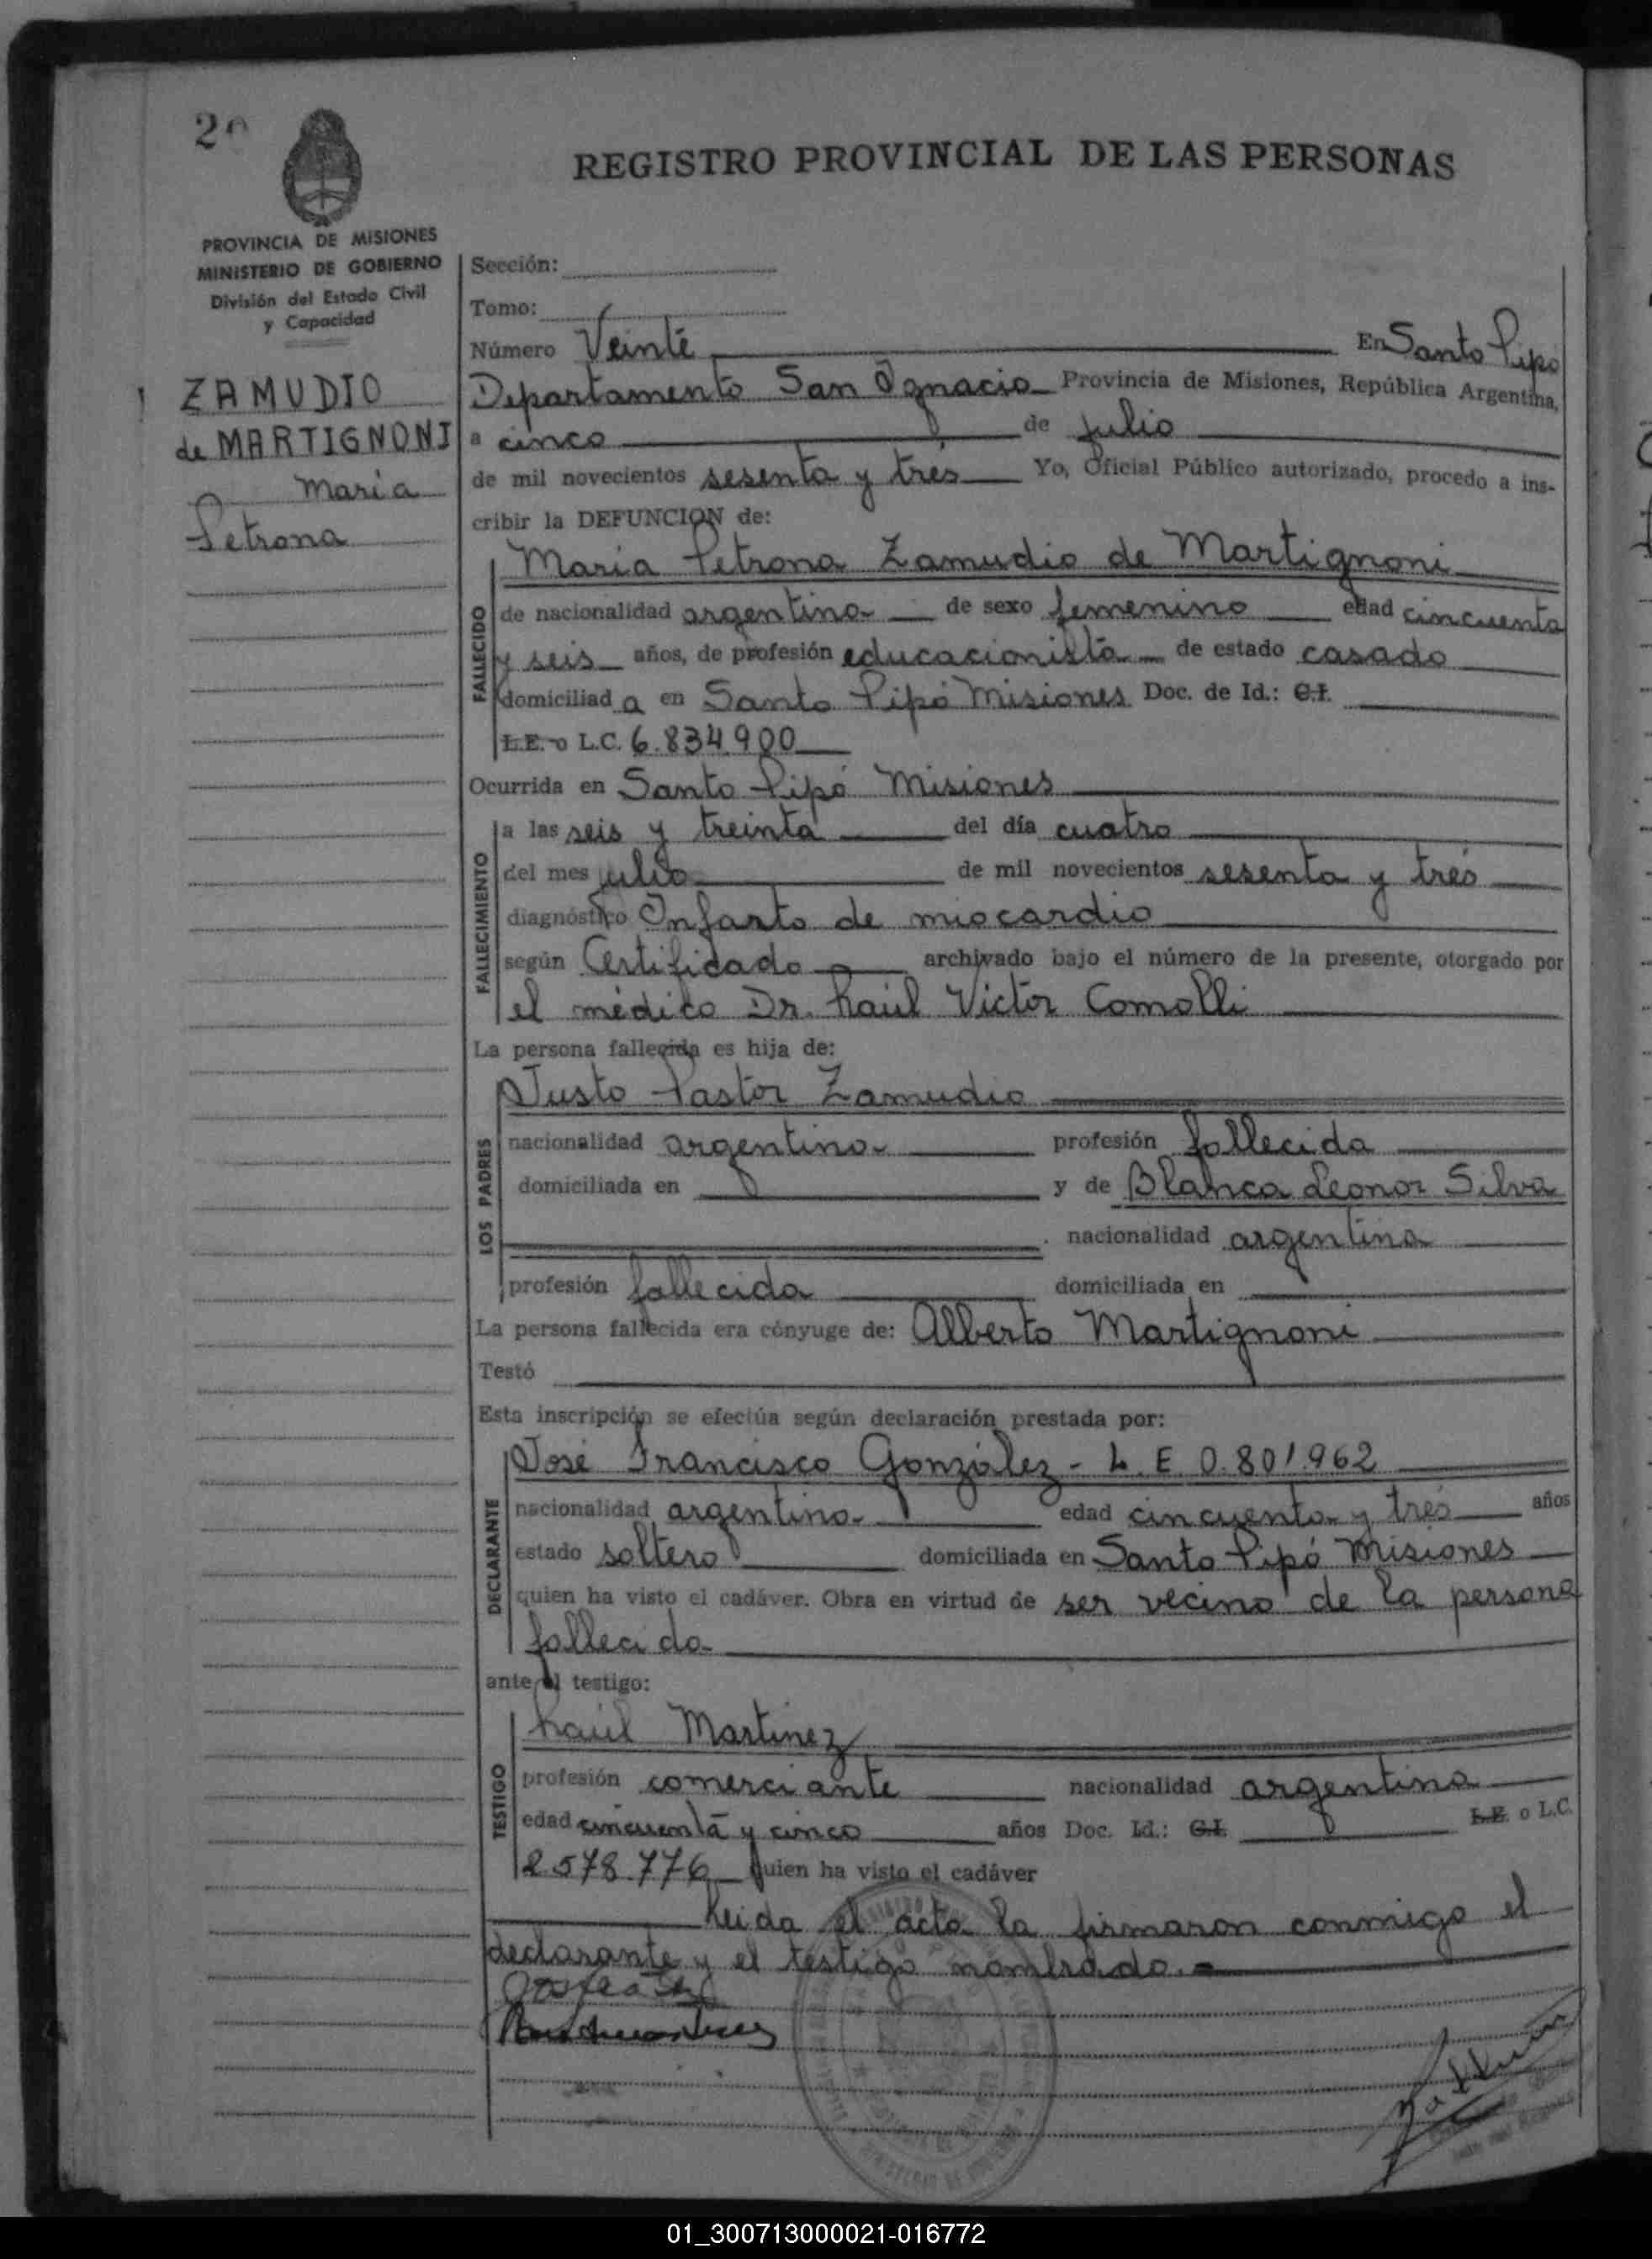 20
REGISTRO PROVINCIAL DE LAS PERSONAS
PROVINCIA DE MISIONES
MINISTERIO DE GOBIERNO
División del Estado Civil
y Capacidad
ZAMUDIO
de MARTIGNONI
María
Petrona
Sección:
Tomo:
Número Veinte En Santo Pipó
Departamento San Ignacio Provincia de Misiones, República Argentina,
a cinco de julio
de mil novecientos sesenta y tres Yo, Oficial Público autorizado, procedo a ins-
cribir la DEFUNCION de:
María Petrona Zamudio de Martignoni
FALLECIDO
de nacionalidad argentina de sexo femenino edad cincuenta
y seis años, de profesión educacionista de estado casada
domiciliad a en Santo Pipó Misiones Doc. de Id.: C.I.
L.E. o L.C. 6.834.900
Ocurrida en Santo Pipó Misiones
FALLECIMIENTO
a las seis y treinta del día cuatro
del mes julio de mil novecientos sesenta y tres
diagnóstico Infarto de miocardio
según Certificado archivado bajo el número de la presente, otorgado por
el médico Dr. Raúl Victor Comolli
La persona fallecida es hija de:
Justo Pastor Zamudio
LOS PADRES
nacionalidad argentina profesión fallecida
domiciliada en y de Blanca Leonor Silva
nacionalidad argentina
profesión fallecida domiciliada en
La persona fallecida era cónyuge de: Alberto Martignoni
Testó
Esta inscripción se efectúa según declaración prestada por:
José Francisco González - L. E 0.801.962
DECLARANTE
nacionalidad argentina edad cincuenta y tres años
estado soltero domiciliada en Santo Pipó Misiones
quien ha visto el cadáver. Obra en virtud de ser vecino de la persona
fallecida
ante el testigo:
Raúl Martinez
TESTIGO
profesión comerciante nacionalidad argentina
edad cincuenta y cinco años Doc. Id.: C.I. L.E. o L.C.
2.578.776 quien ha visto el cadáver
Leida el acta la firmaron conmigo el
declarante y el testigo nombrado.=
01_300713000021-016772